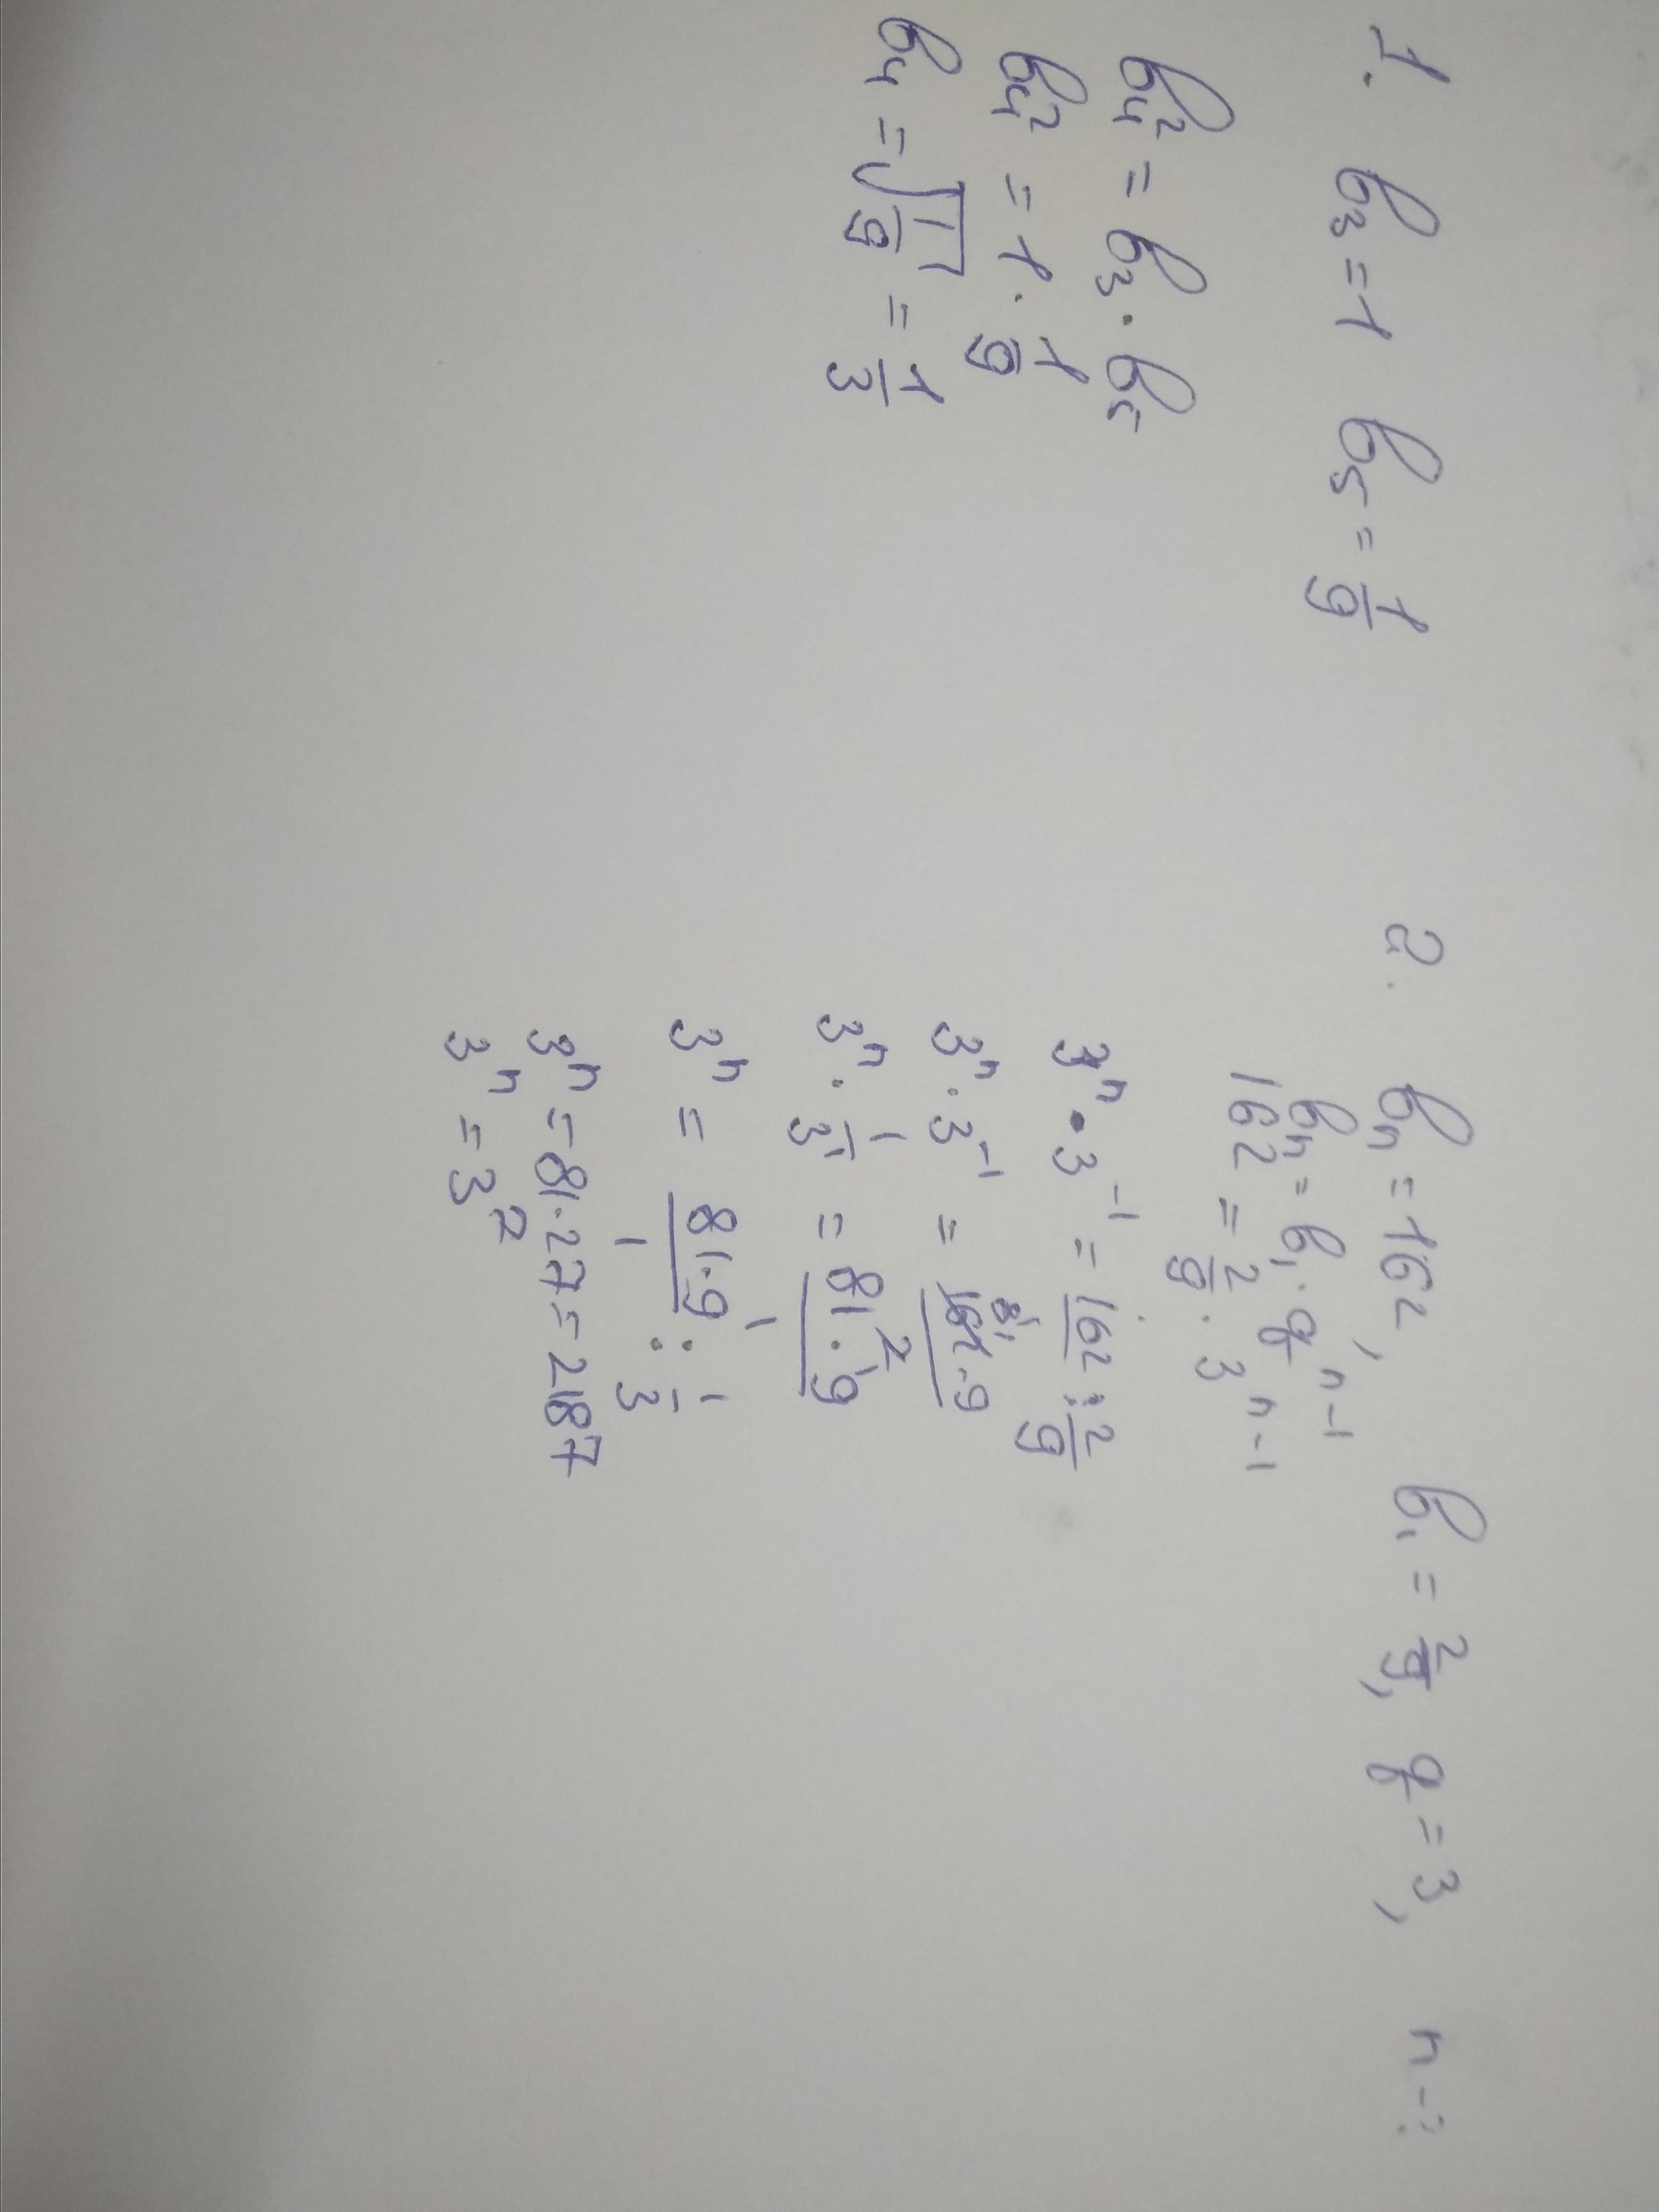 1. b₃ = 1 b₅ = 1/9
b₄² = b₃ · b₅
b₄² = 1 · 1/9
b₄ = √(1/9) = 1/3
2. bₙ = 162, b₁ = 2/9, q = 3, n - ?
bₙ = b₁ · qⁿ⁻¹
162 = 2/9 · 3ⁿ⁻¹
3ⁿ · 3⁻¹ = 162 : 2/9
3ⁿ · 3⁻¹ = 162 · 9 / 2
3ⁿ · 1/3 = 81 · 9 / 1
3ⁿ = 81 · 9 / 1 : 1/3
3ⁿ = 81 · 27 = 2187
3ⁿ = 3²